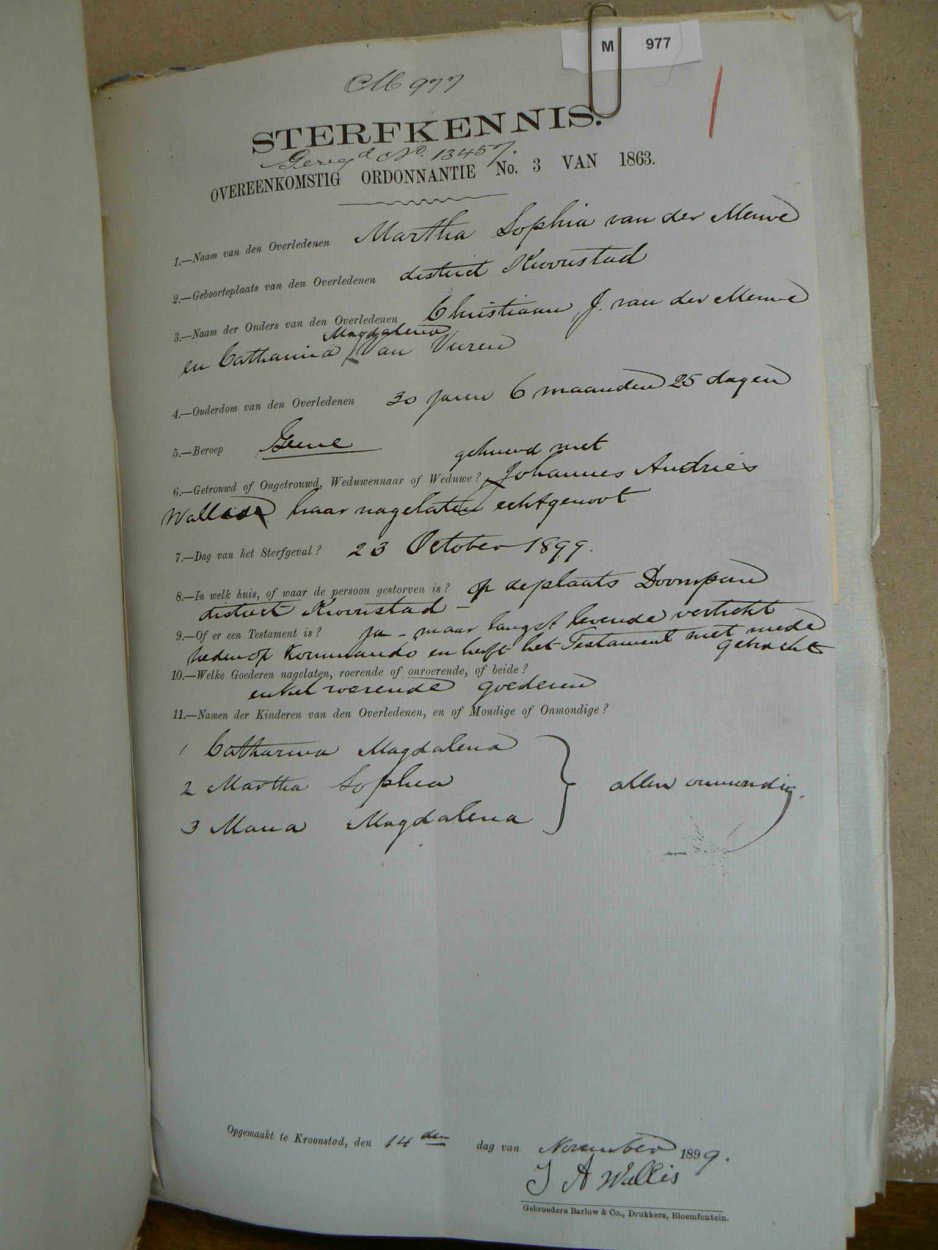 M 977
M 977
STERFKENNIS.
Geregd No. 13457.
OVEREENKOMSTIG ORDONNANTIE No. 3 VAN 1863.
1.—Naam van den Overledenen Martha Sophia van der Merwe
2.—Geboorteplaats van den Overledenen district Kroonstad
3.—Naam der Ouders van den Overledenen Christiaan J. van der Merwe
Magdalena
en Catharina van Vuren
4.—Ouderdom van den Overledenen 30 jaren 6 maanden 25 dagen
5.—Beroep Geene
gehuwd met
6.—Getrouwd of Ongetrouwd, Weduwennaar of Weduwe? Johannes Andries
haar nagelaten echtgenoot
7.—Dag van het Sterfgeval? 23 October 1899.
8.—In welk huis, of waar de persoon gestorven is? op de plaats Doornpan
district Kroonstad
9.—Of er een Testament is? ja - maar langst levende verticht
heden op Kommando en heeft het Testament met mede
gebracht
10.—Welke Goederen nagelaten, roerende of onroerende, of beide?
enkel roerende goederen
11.—Namen der Kinderen van den Overledenen, en of Mondige of Onmondige?
1 Catharina Magdalena
2 Martha Sophia
allen onmondig.
3 Maria Magdalena
Opgemaakt te Kroonstad, den 14den dag van November 1899.
J A Wallis
Gebroeders Barlow & Co., Drukkers, Bloemfontein.